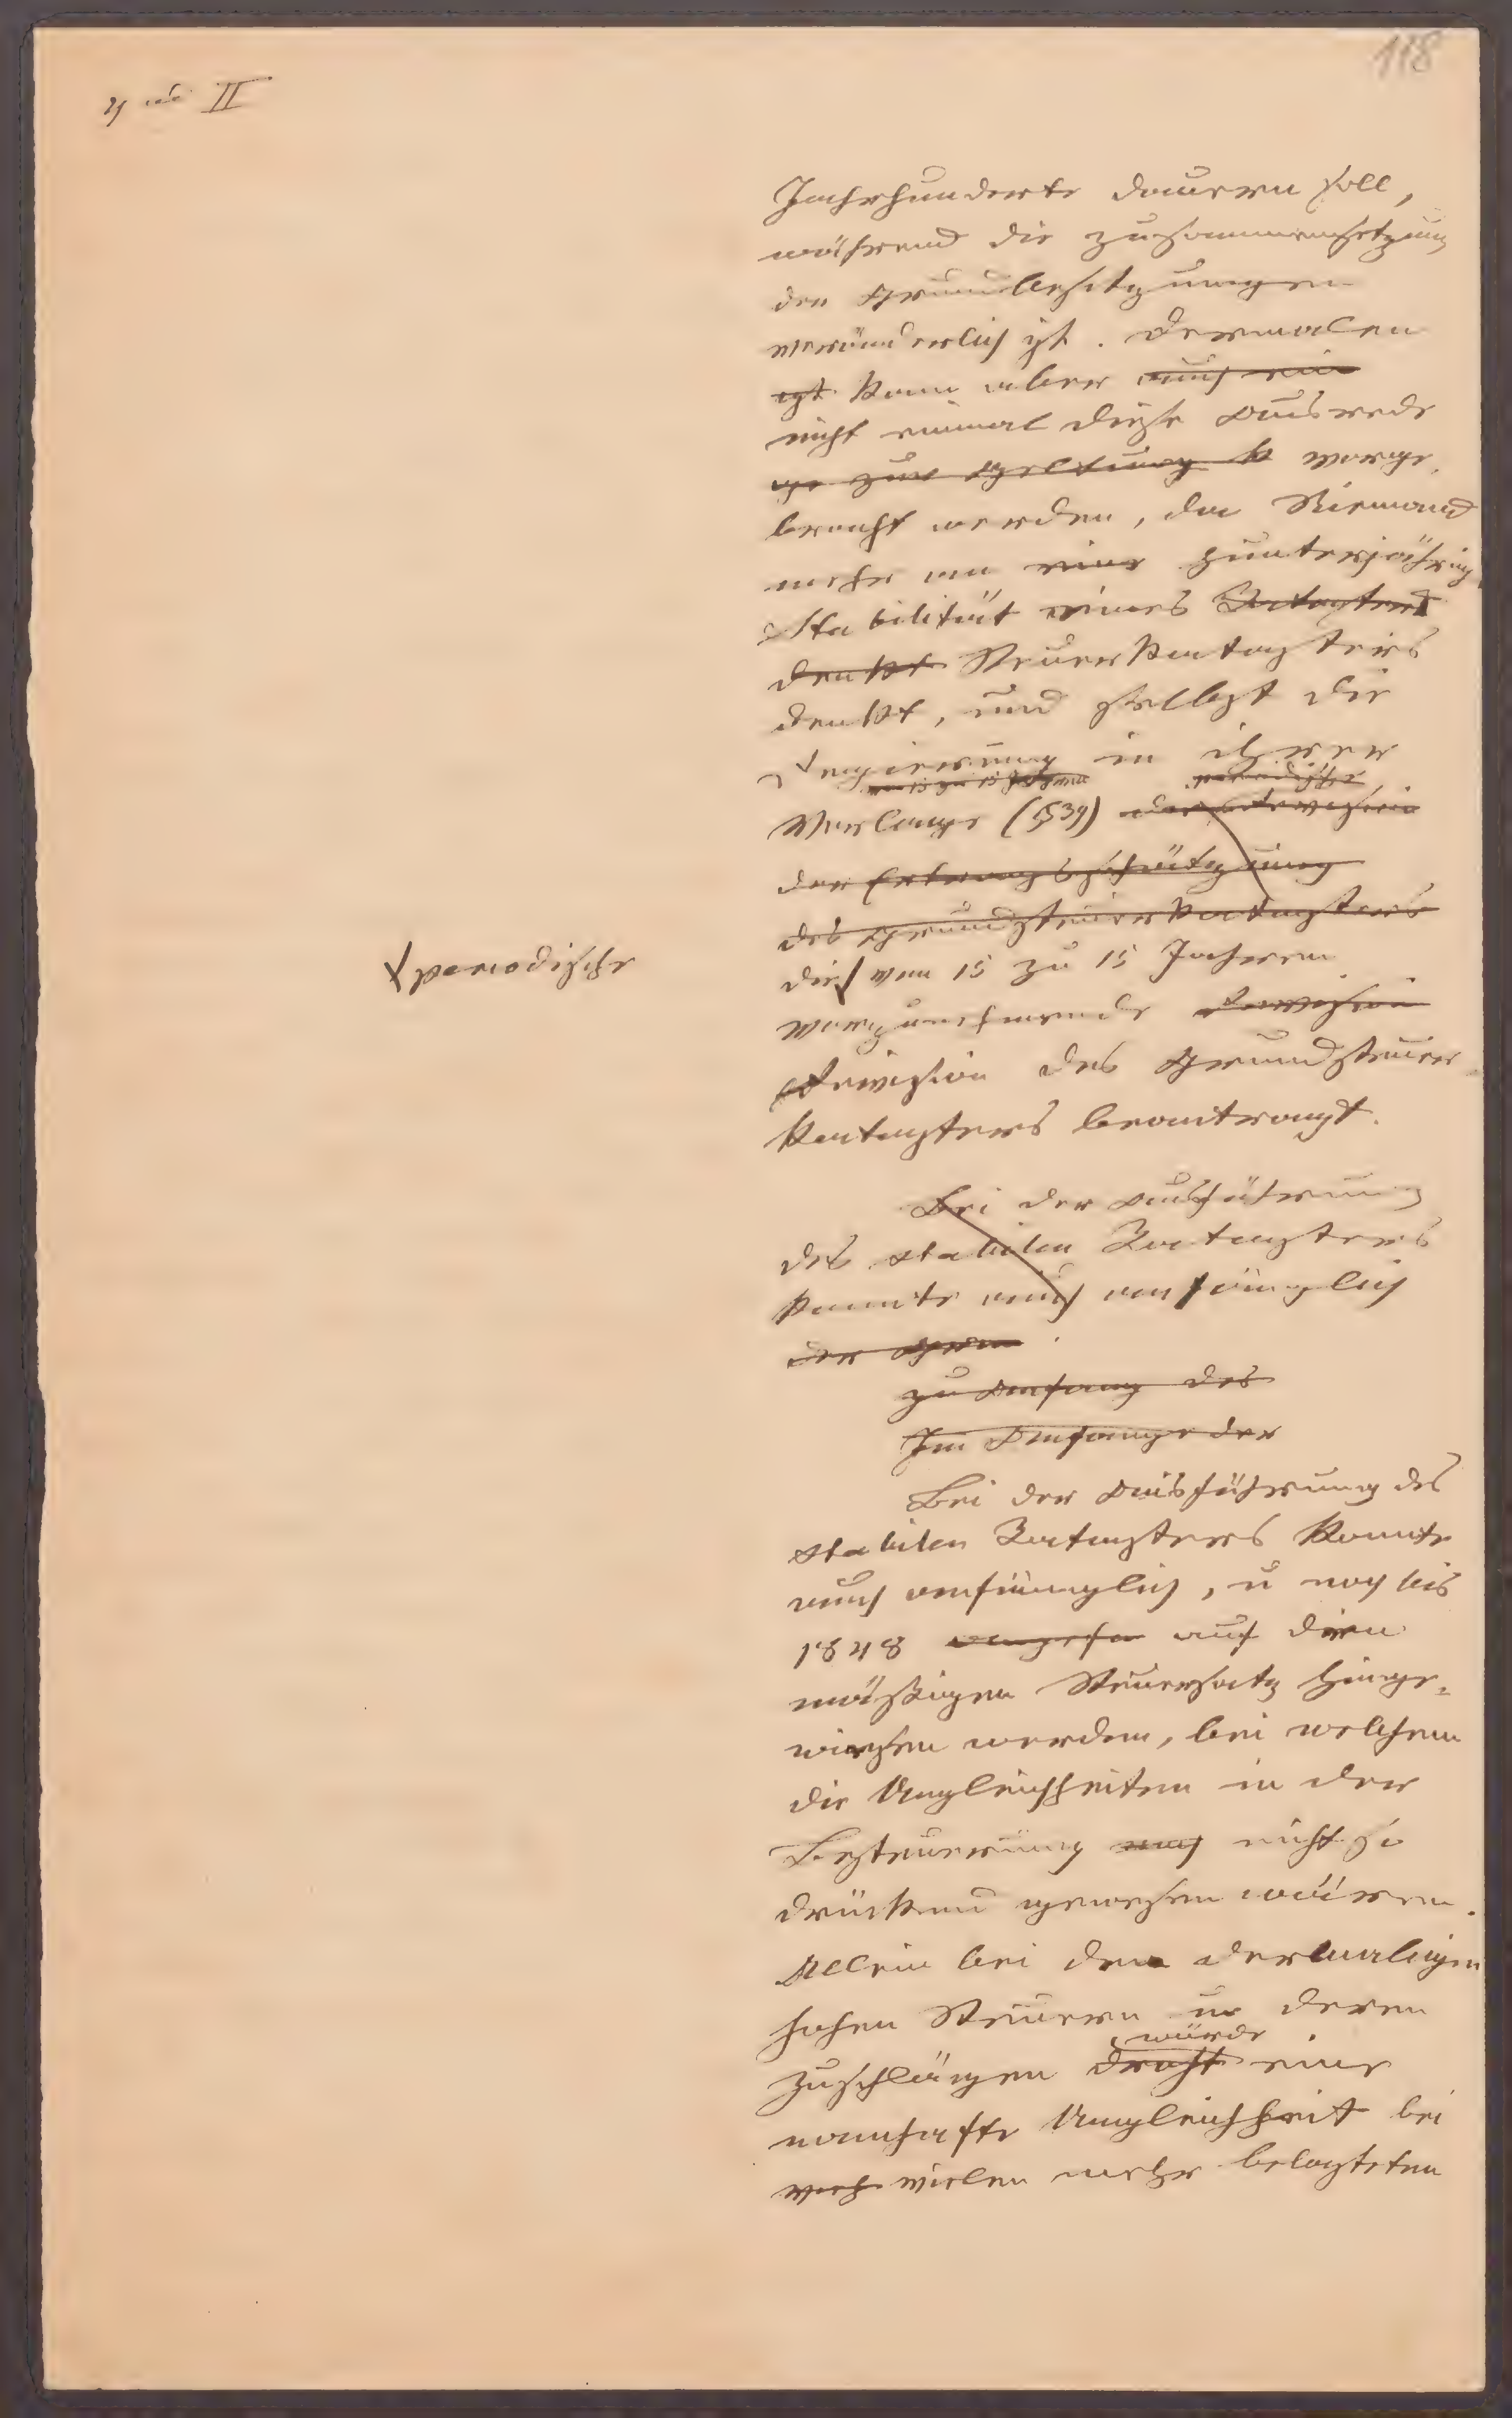 118
II
Jahrhunderte dauern soll,
während die Zusammensetzung
der Grundbesitzungen
veränderlich ist. Dermalen
ist kann aber auch ein
nicht einmal diese Ausrede
ge zur Geltung k vorge-
bracht werden, da Niemand
mehr an eine hunterjährig
Stabilität eines Katasters
denkt Steuerkatasters
denkt, und selbst die
Regierung in ihrer
von 15 zu 15 Jahren periodische
Vorlage (§39) die Revision
der Ertragsschätzung
des Grundsteuerkatasters
die von 15 zu 15 Jahren
periodische
vorzunehmende Revision
Revision des Grundsteuer-
katasters beantragt.
Bei der Ausführung
des stabilen Katasters
konnte auch anfänglich
der Grun
zu Anfang des
Im Anfange der
Bei der Ausführung des
stabilen Katasters konnte
auch anfänglich, u noch bis
1848 auf den
mäßigen Steuersatz hinge-
wiesen werden, bei welchem
die Ungleichheiten in der
Besteuerung nicht so
drückend gewesen wären.
Allein bei den dermaligen
hohen Steuern u deren
würde
Zuschlägen droht eine
namhafte Ungleichheit bei
vielen mehr belasteten